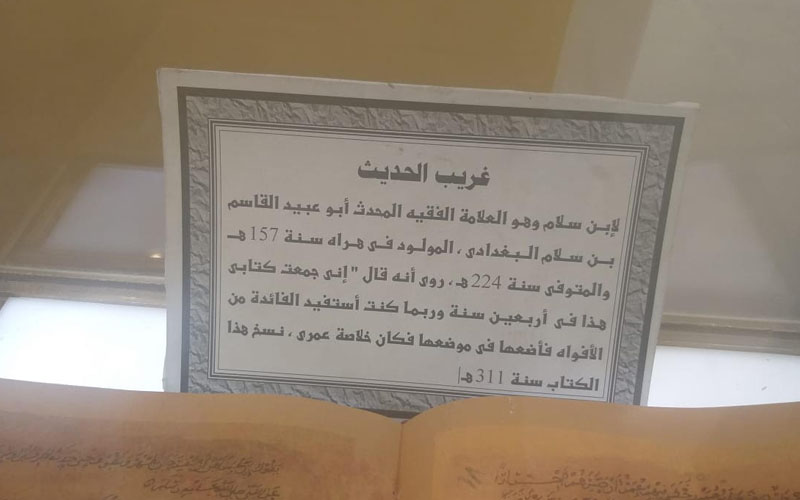 غريب الحديث
لإبن سلام وهو العلامة الفقيه المحدث أبو عبيد القاسم
بن سلام البغدادى ، المولود فى هراه سنة 157هـ
والمتوفى سنة 224هـ ، روى أنه قال " إنى جمعت كتابى
هذا فى أربعين سنة وربما كنت أستفيد الفائدة من
الأفواه فأضعها فى موضعها فكان خلاصة عمرى ، نسخ هذا
الكتاب سنة 311هـ|